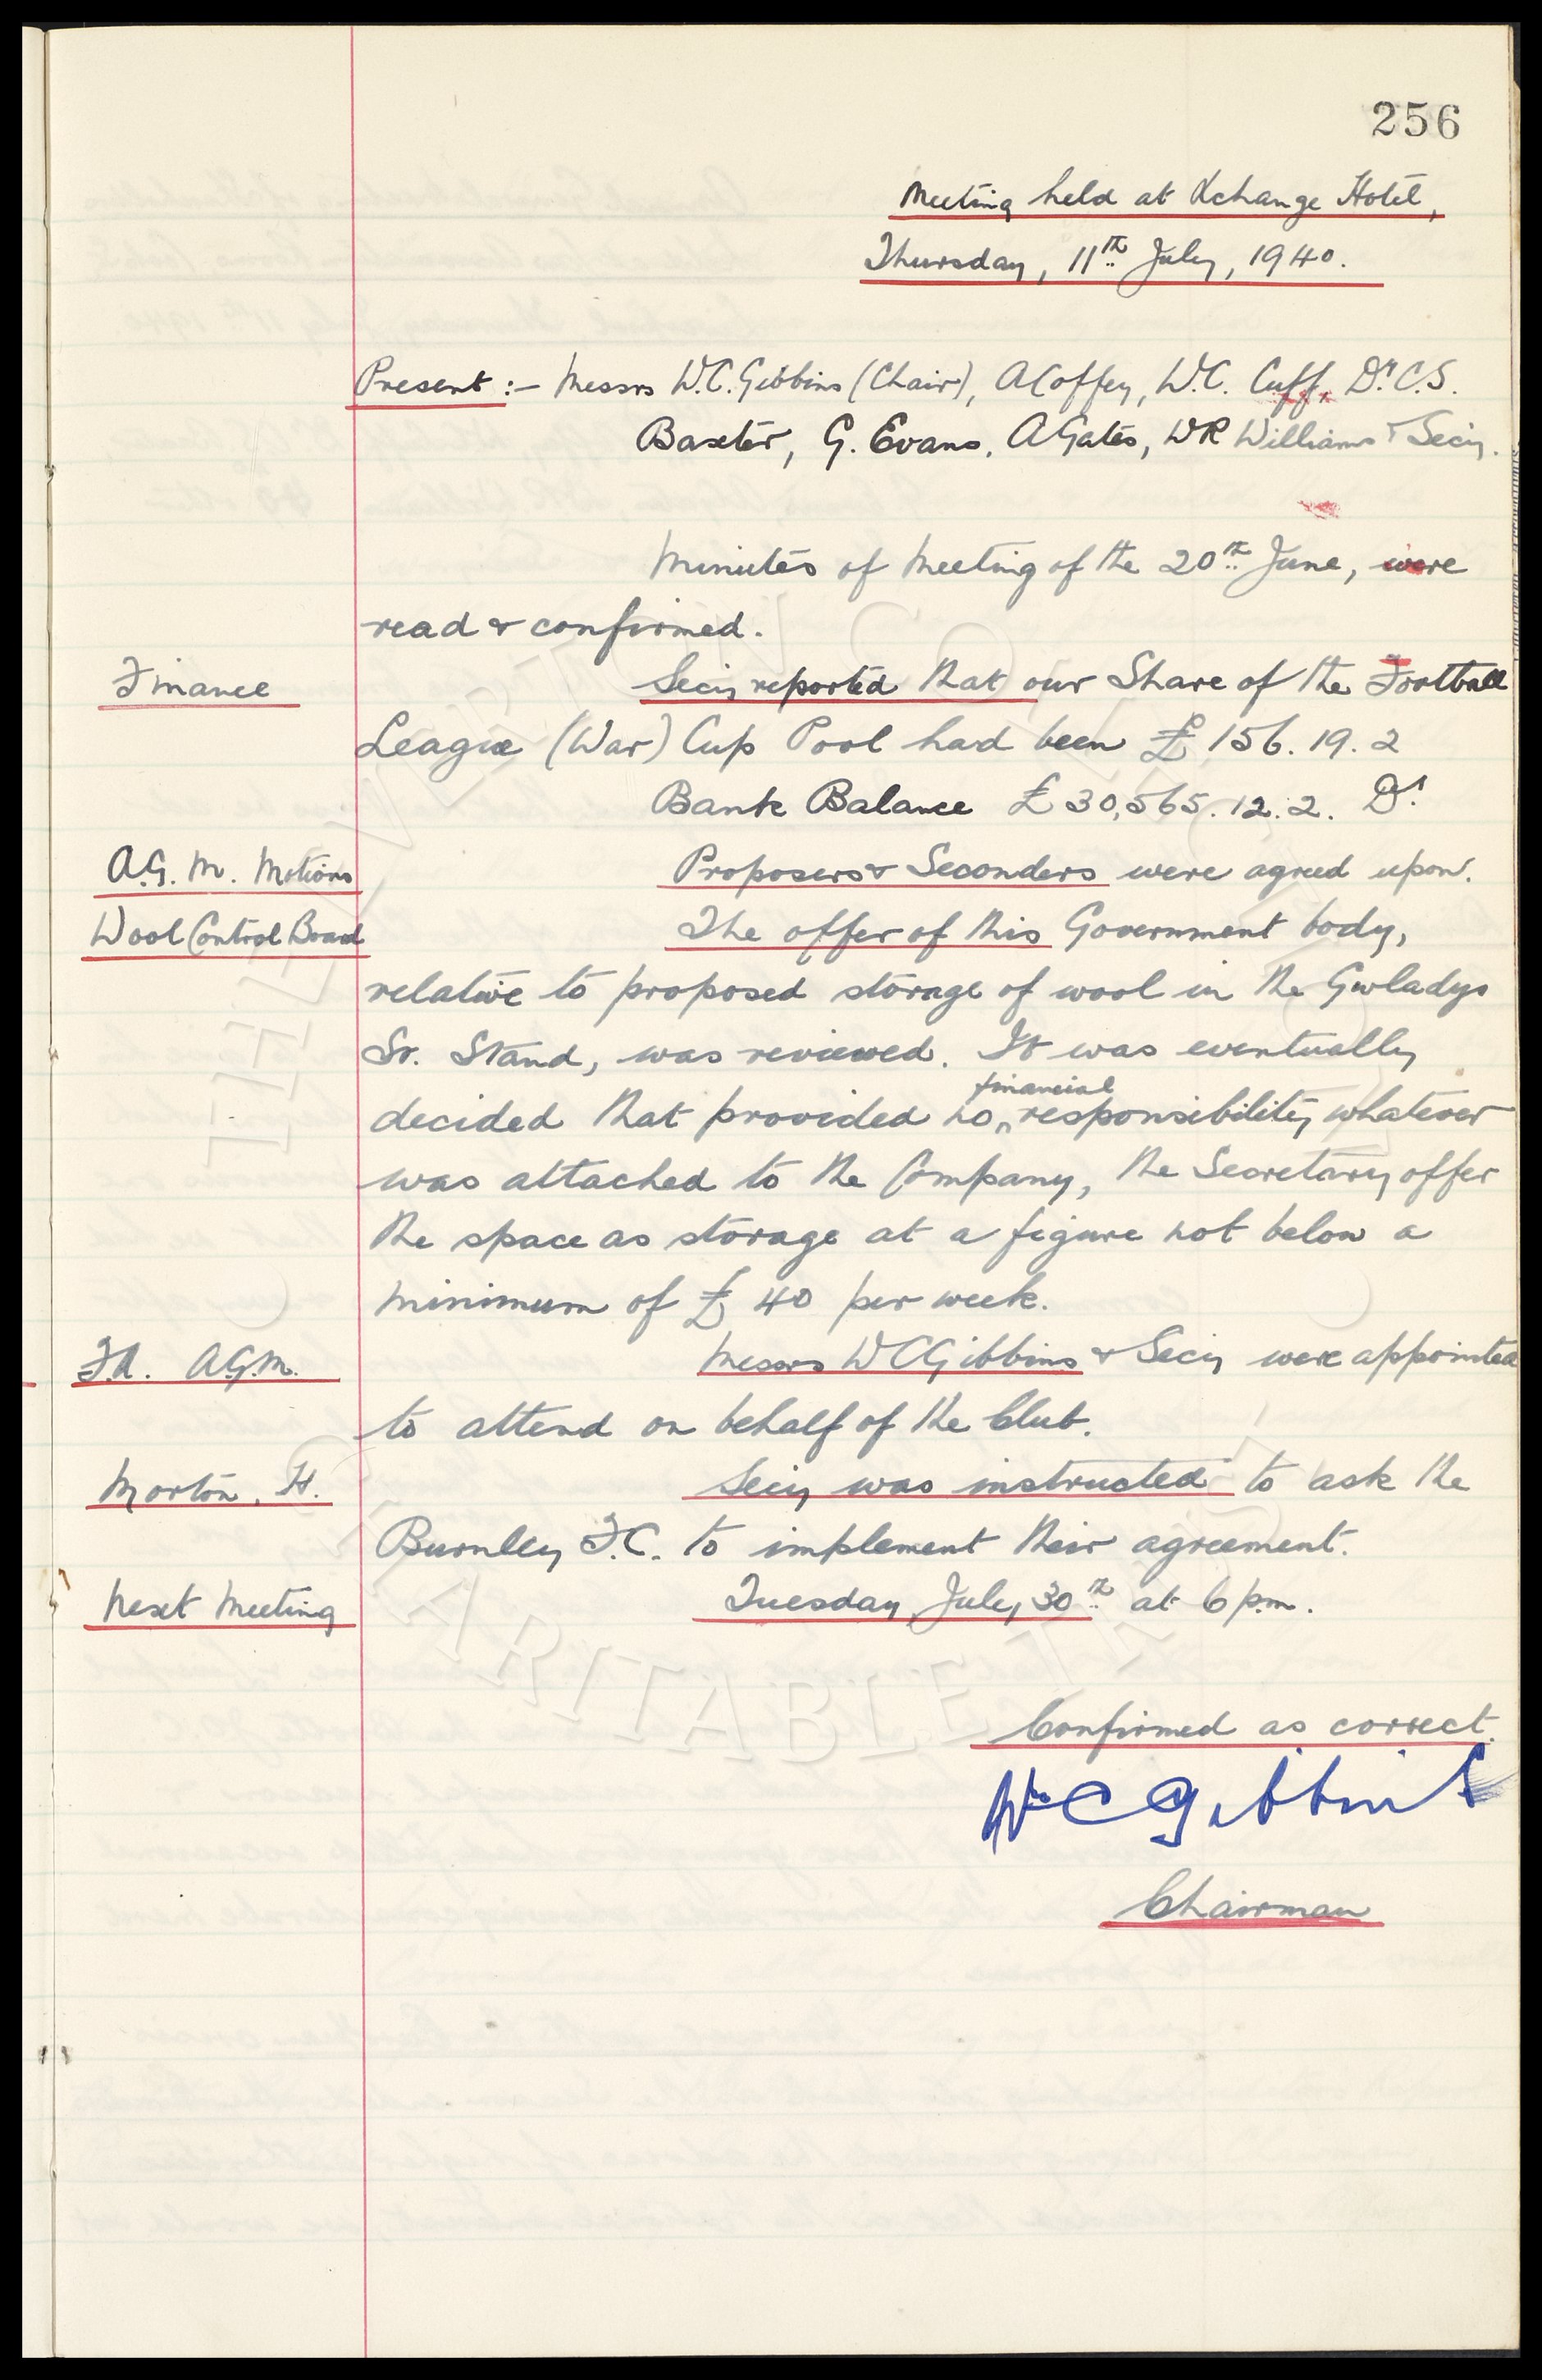 256
Meeting held at Xchange Hotel,
Thursday, 11th July, 1940.
Present :- Messrs W.C. Gibbins (Chair), A Coffey, W.C. Cuff, Dr C.S.
Baxter, G. Evans, A Gates, W R Williams & Secy.
Minutes of Meeting of the 20th June, were
read & confirmed.
Finance Secy reported that our Share of the Football
League (War) Cup Pool had been £156. 19. 2
Bank Balance £30,565. 12. 2. Dr
A.G.M. Motions Proposers & Seconders were agreed upon.
Wool Control Board The offer of this Government body,
relative to proposed storage of wool in the Gwladys
St. Stand, was reviewed. It was eventually
decided that provided no financial responsibility whatever
was attached to the Company, the Secretary offer
the space as storage at a figure not below a
minimum of £40 per week.
F.A. A.G.M. Messrs W C Gibbins & Secy were appointed
to attend on behalf of the Club.
Morton, H. Secy was instructed to ask the
Burnley F.C. to implement their agreement.
Next Meeting Tuesday July 30th at 6 p.m.
Confirmed as correct.
Wm C Gibbins
Chairman
THE EVERTON COLLECTION
CHARITABLE TRUST